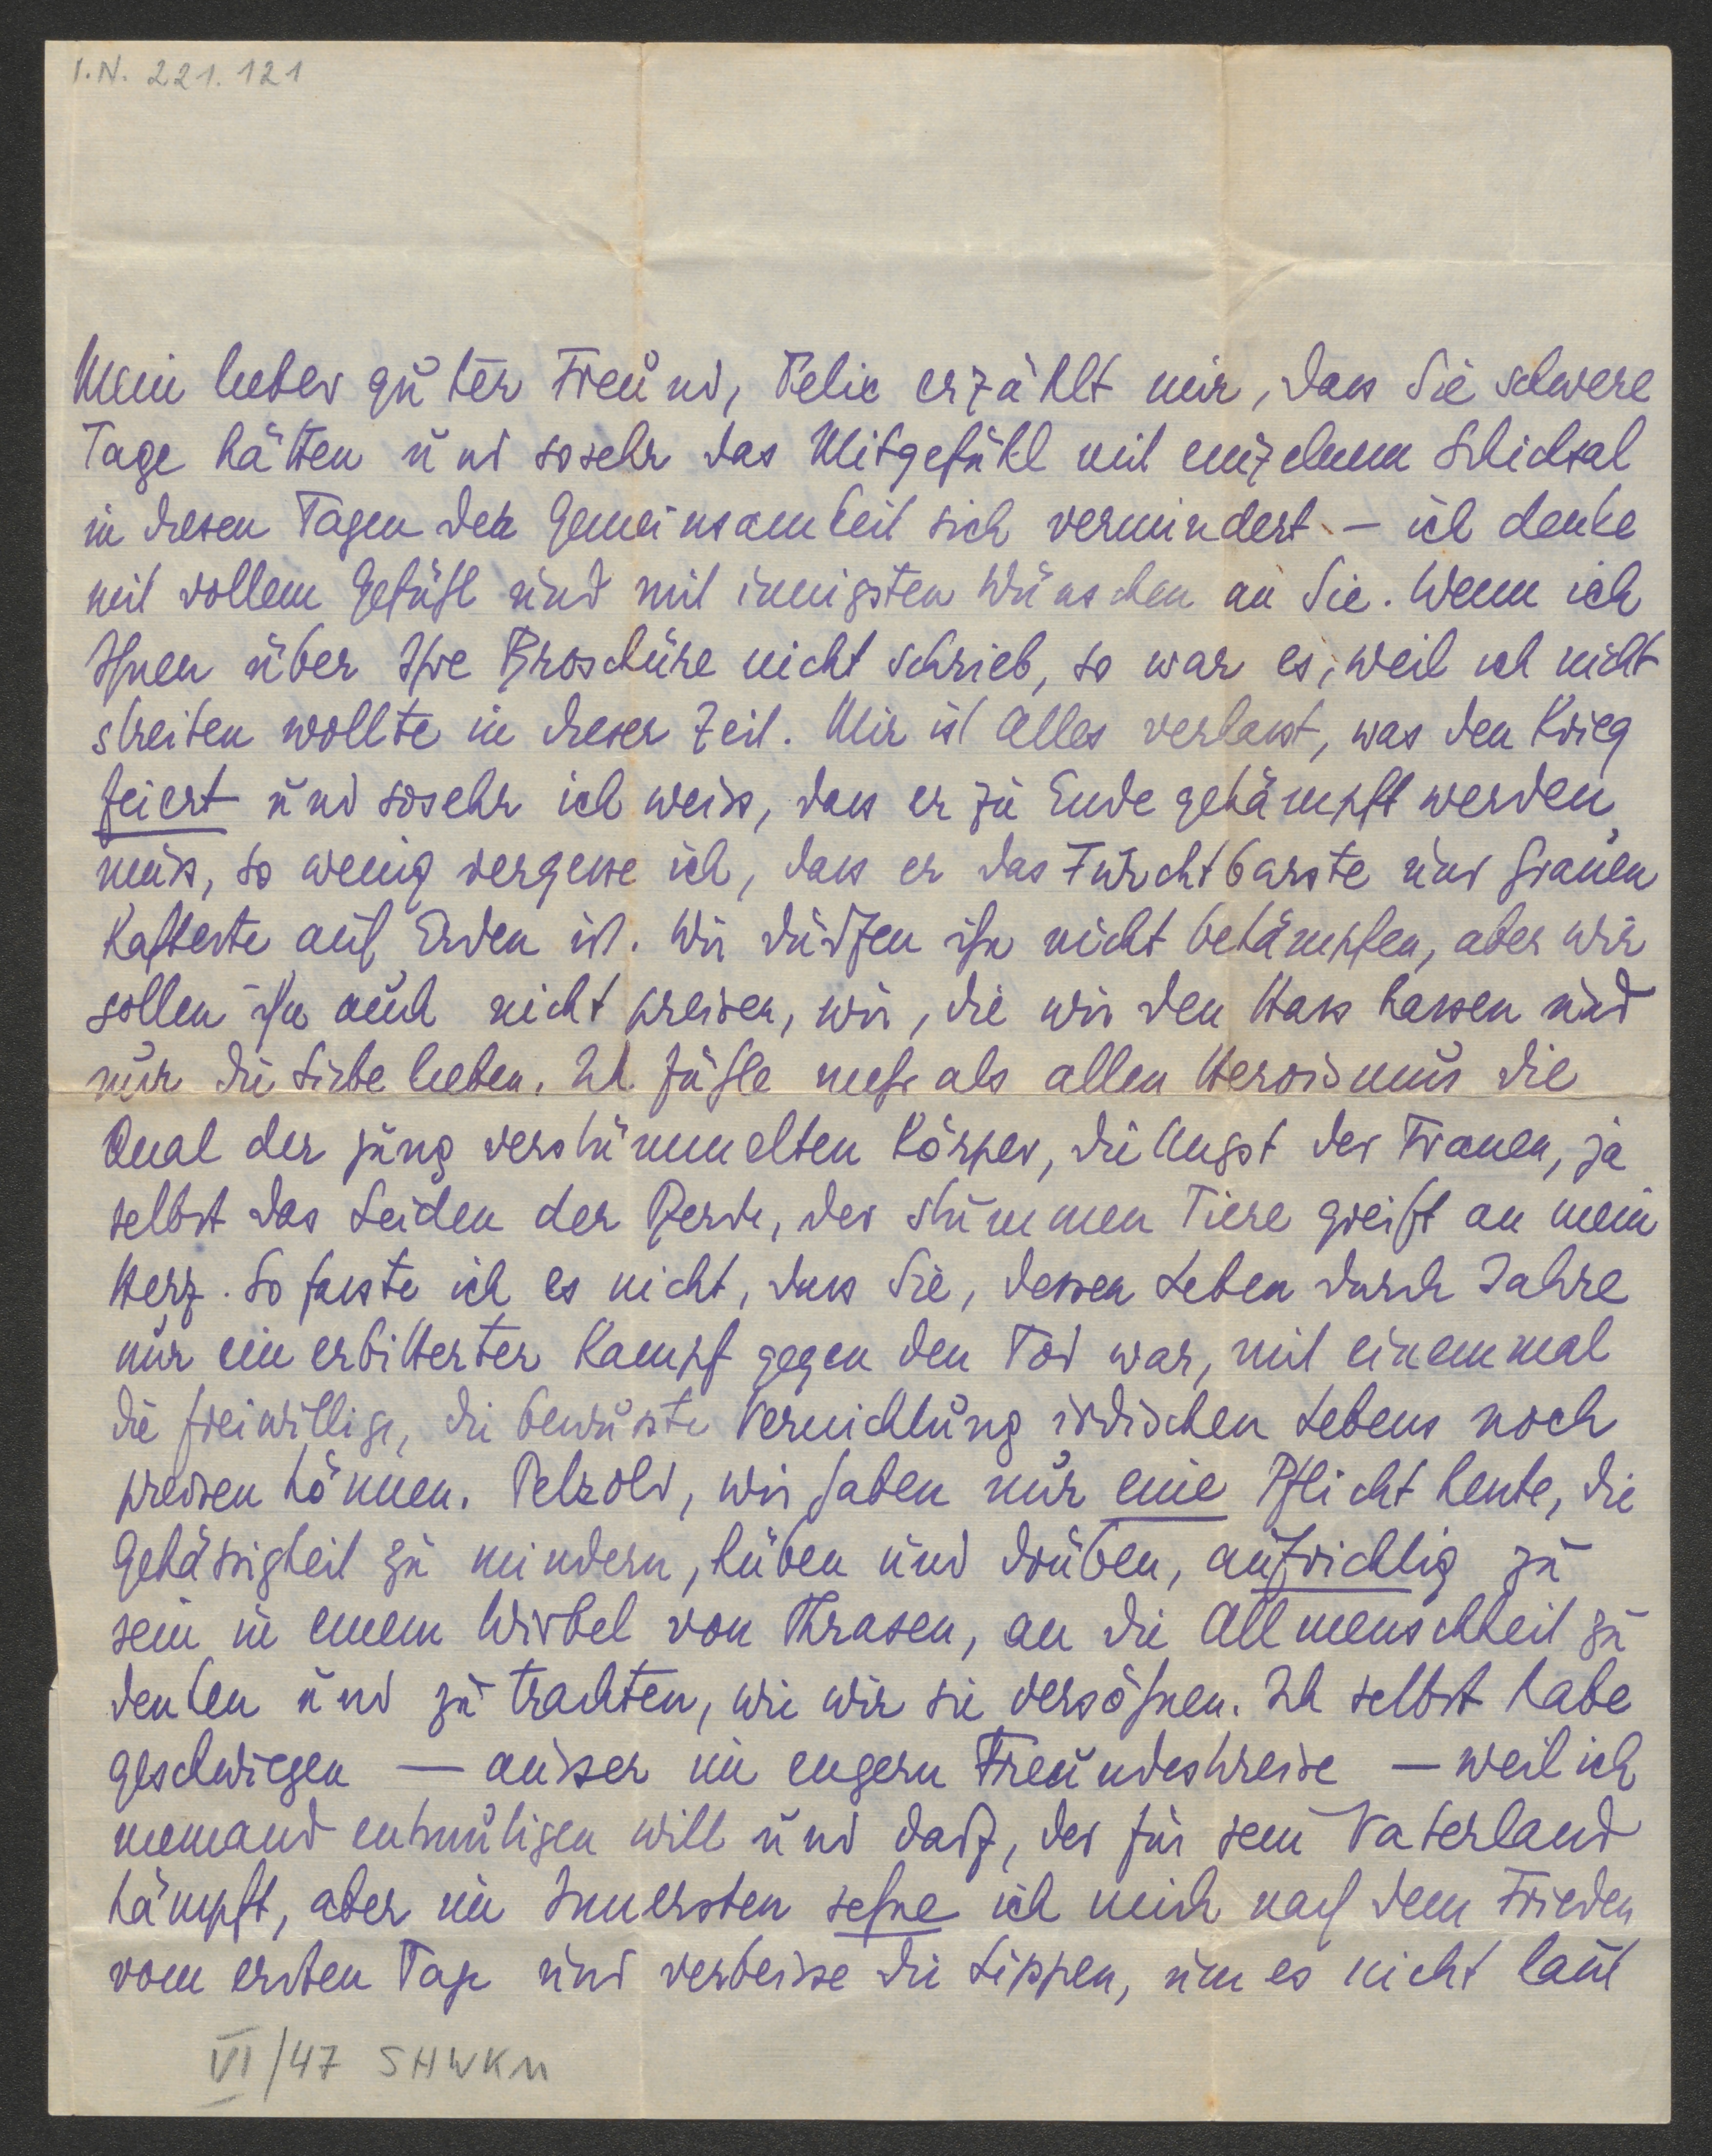 I.N. 221.121
Mein lieber guter Freund, Felix erzählt mir, dass Sie schwere
Tage hätten und sosehr das Mitgefühl mit einzelnem Schicksal
in diesen Tagen der Gemeinsamkeit sich vermindert – ich denke
mit vollem Gefühl und mit innigsten Wünschen an Sie. Wenn ich
Ihnen über Ihre Broschüre nicht schrieb, so war es, weil ich nicht
streiten wollte in dieser Zeit. Mir ist alles verhasst, was den Krieg
feiert und sosehr ich weiss, dass er zu Ende gekämpft werden
muss, so wenig vergesse ich, dass er das Furchtbarste und Grauen
hafteste auf Erden ist. Wir dürfen ihn nicht bekämpfen, aber wir
sollen ihn auch nicht preisen, wir, die wir den Hass hassen und
nur die Liebe lieben. Ich fühle mehr als allen Heroismus die
Qual der jung verstümmelten Körper, die Angst der Frauen, ja
selbst das Leiden der Pferde, der stummen Tiere greift an mein
Herz. So fasste ich es nicht, dass Sie, dessen Leben durch Jahre
nur ein erbitterter Kampf gegen den Tod war, mit einemmal
die freiwillige, die bewusste Vernichtung irdischen Lebens noch
preisen können. Petzold, wir haben nur eine Pflicht heute, die
Gehässigkeit zu mindern, hüben und drüben, aufrichtig zu
sein in einem Wirbel von Phrasen, an die Allmenschheit zu
denken und zu trachten, wie wir sie versöhnen. Ich selbst habe
geschwiegen — ausser im engern Freundeskreise — weil ich
niemand entmutigen will und darf, der für sein Vaterland
kämpft, aber im Innersten sehne ich mich nach dem Frieden
vom ersten Tage und verbeisse die Lippen, um es nicht laut
VI/47 SHWKM